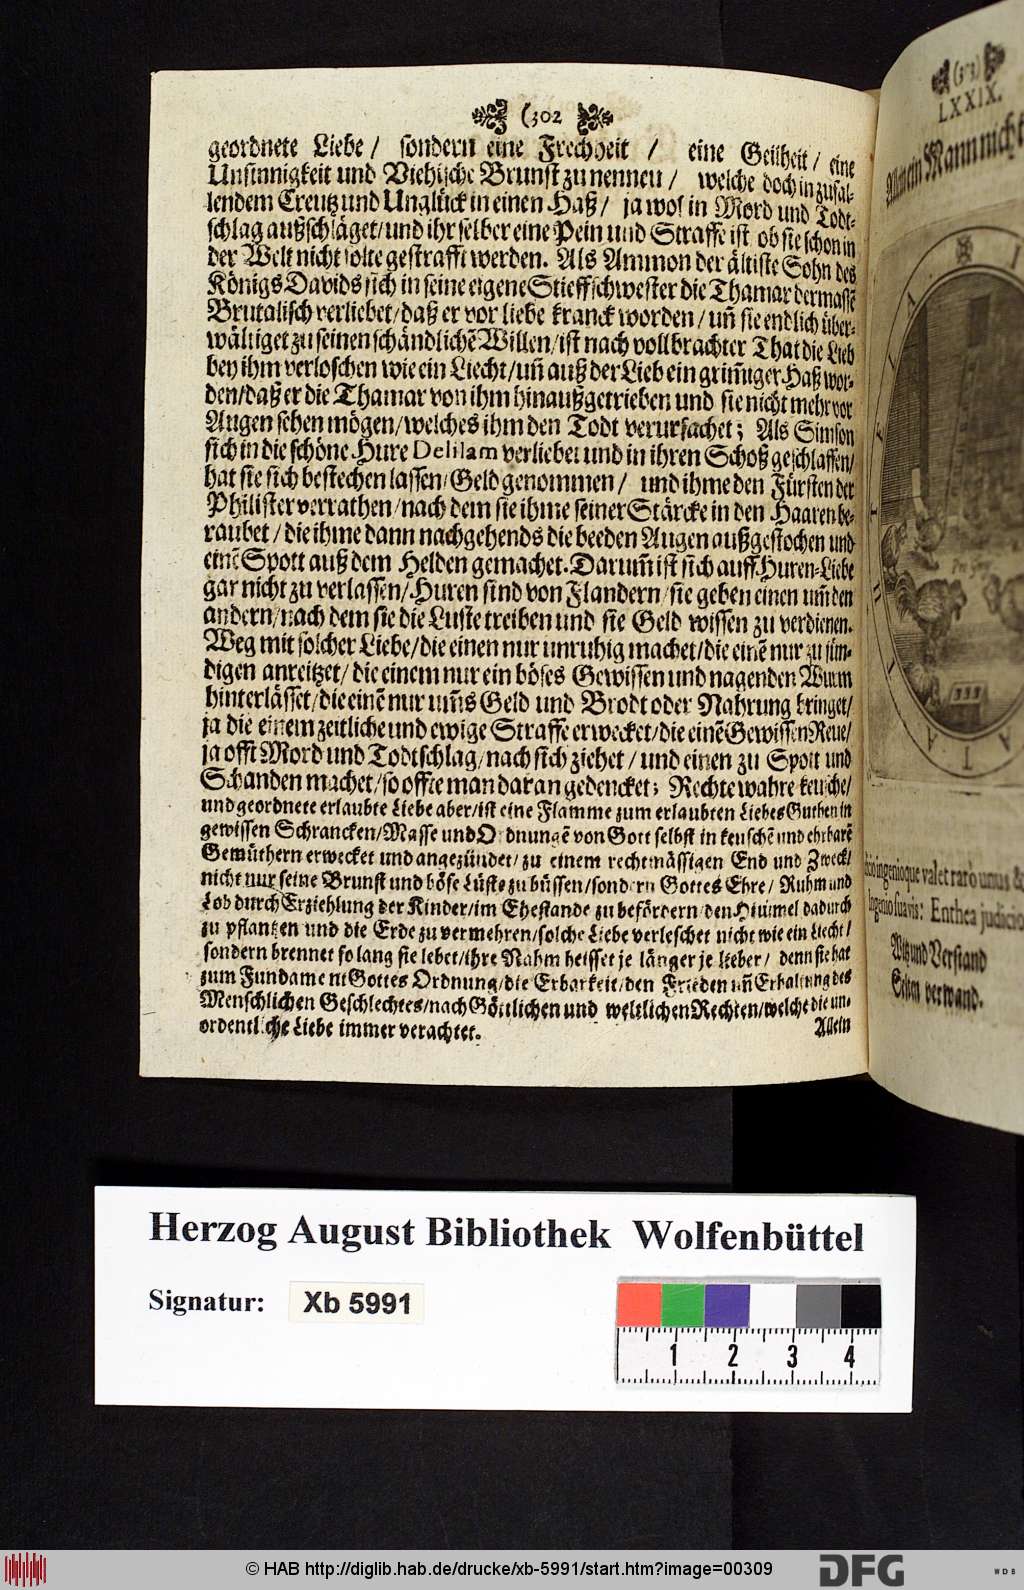 (302
geordnete Liebe / sondern eine Frechheit / eine Geilheit / eine
Unsinnigkeit und Viehische Brunst zu nennen / welche doch in zufal-
lendem Creutz und Unglück in einen Haß / ja wol in Mord und Todt-
schlag außschläget / und ihr selber eine Pein und Straffe ist ob sie schon in
der Welt nicht solte gestrafft werden. Als Ammon der ältiste Sohn des
Königs Davids sich in seine eigene Stieffschwester die Thamar dermassē
Brutalisch verliebet / daß er vor liebe kranck worden / uñ sie endlich über-
wältiget zu seinen schändlichē Willen / ist nach vollbrachter That die Lieb
bey ihm verloschen wie ein Liecht / uñ auß der Lieb ein grim̃iger Haß wor-
den / daß er die Thamar von ihm hinauß getrieben und sie nicht mehr vor
Augen sehen mögen / welches ihm den Todt verursachet; Als Simson
sich in die schöne Hure Delilam verliebet und in ihren Schoß geschlaffen /
hat sie sich bestechen lassen / Geld genommen / und ihme den Fürsten der
Philister verrathen / nach dem sie ihme seiner Stärcke in den Haaren be-
raubet / die ihme dann nachgehends die beeden Augen außgestochen und
einē Spott auß dem Helden gemachet. Darum̃ ist sich auff Huren-Liebe
gar nicht zu verlassen / Huren sind von Flandern / sie geben einen um̃ den
andern / nach dem sie die Luste treiben und sie Geld wissen zu verdienen.
Weg mit solcher Liebe / die einen nur unruhig machet / die einē nur zu sün-
digen anreitzet / die einem nur ein böses Gewissen und nagenden Wurm
hinterlässet / die einē nur um̃s Geld und Brodt oder Nahrung bringet /
ja die einem zeitliche und ewige Straffe erwecket / die einē Gewissen Reue /
ja offt Mord und Todtschlag / nach sich ziehet / und einen zu Spott und
Schanden machet / so offte man daran gedencket; Rechte wahre keusche /
und geordnete erlaubte Liebe aber / ist eine Flamme zum erlaubten Liebes Guthen in
gewissen Schrancken / Masse und Ordnungē von Gott selbst in keuschē und ehrbarē
Gemüthern erwecket und angezündet / zu einem rechtmässigen End und Zweck /
nicht nur seine Brunst und böse Lüste zu büssen / sondern Gottes Ehre / Ruhm und
Lob durch Erziehlung der Kinder / im Ehestande zu befördern / den Himmel dadurch
zu pflantzen und die Erde zu vermehren / solche Liebe verleschet nicht wie ein Liecht /
sondern brennet so lang sie lebet / ihre Nahm heisset je länger je lieber / denn sie hat
zum Fundament Gottes Ordnung / die Erbarkeit / den Frieden uñ Erhaltung des
Menschlichen Geschlechtes / nach Göttlichen und weltlichen Rechten / welche die un-
ordentliche Liebe immer verachtet.
Allein
LXXIX.
ingenioque valet rarò unus &
Ingenio suavis: Enthea judicio
Witz und Verstand
Selten verwand.
Herzog August Bibliothek Wolfenbüttel
Signatur: Xb 5991
1 2 3 4
© HAB http://diglib.hab.de/drucke/xb-5991/start.htm?image=00309
DFG
WDB